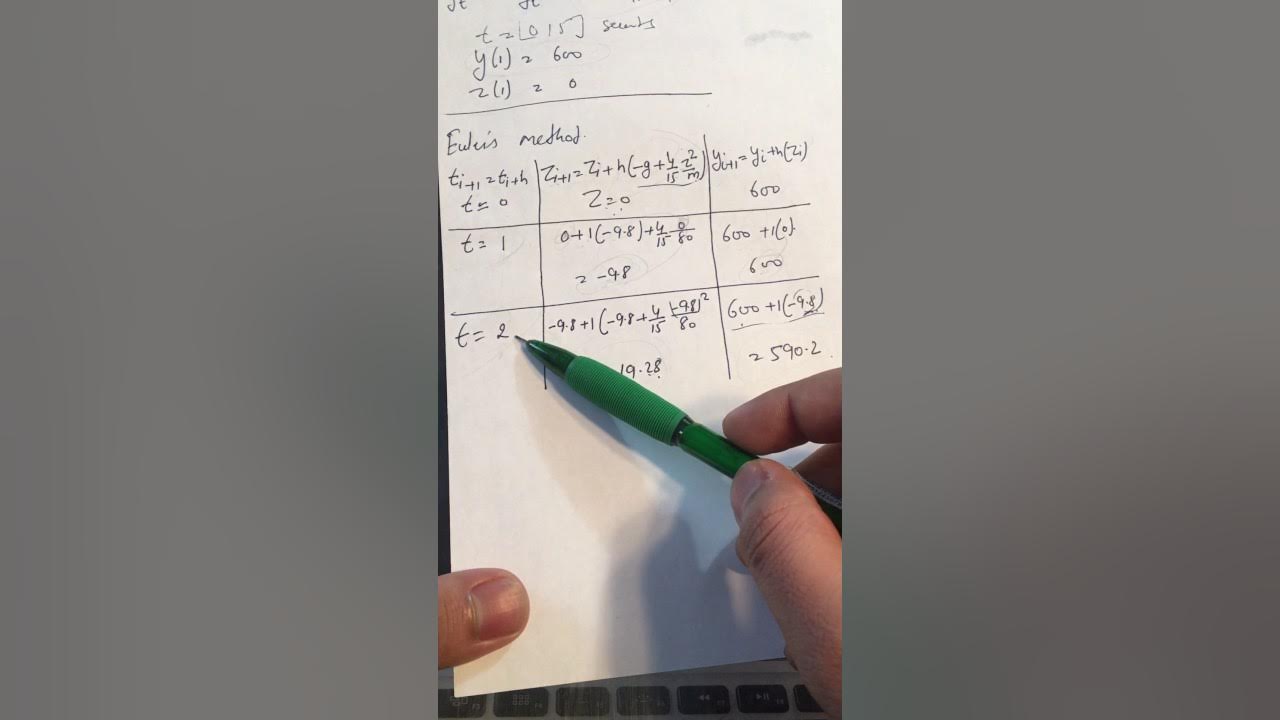 t = [0 15] seconds
y(1) = 600
z(1) = 0
Euler's method.
t_{i+1} = t_i + h | z_{i+1} = z_i + h(-g + 4/15 z²/m) | y_{i+1} = y_i + h(z_i)
t = 0 | z = 0 | 600
t = 1 | 0 + 1(-9.8) + 4/15 0/80 | 600 + 1(0).
= -9.8 | 600
t = 2 | -9.8 + 1(-9.8 + 4/15 (-9.8)²/80 | 600 + 1(-9.8)
19.28 | = 590.2.